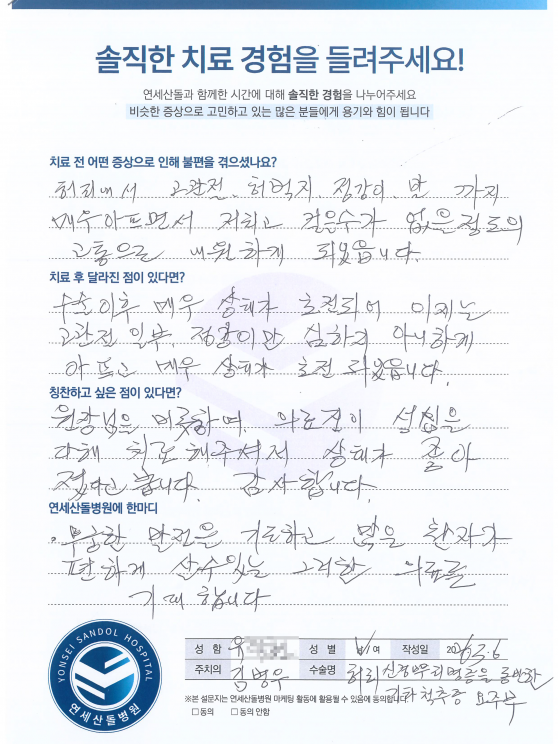 솔직한 치료 경험을 들려주세요!
연세산돌과 함께한 시간에 대해 솔직한 경험을 나누어주세요
비슷한 증상으로 고민하고 있는 많은 분들에게 용기와 힘이 됩니다
치료 전 어떤 증상으로 인해 불편을 겪으셨나요?
허리에서 고관절, 허벅지, 정강이, 발 까지
매우아프면서 저리고 걸을수가 없을정도의
고통으로 내원하게 되었읍니다.
치료 후 달라진 점이 있다면?
수술이후 매우 상태가 호전되어 이제는
고관절 일부, 정강이만 심하지 아니하게
아프고 매우 상태가 호전 되었읍니다.
칭찬하고 싶은 점이 있다면?
원장님을 비롯하여, 의료진이 성심을
다해 치료해주셔서 상태가 좋아
졌다고 봅니다. 감사합니다.
연세산돌병원에 한마디
무궁한 발전을 기도하고 많은 환자가
편하게 살수있는 그러한 의료를
기대 합니다
성 함 유 성 별 남/여 작성일 20
주치의 김병우 수술명 허리신경뿌리병증을 동반한
척추증 요추부
※본 설문지는 연세산돌병원 마케팅 활동에 활용될 수 있음에 동의합니다.
□ 동의 □ 동의 안함
YONSEI SANDOL HOSPITAL
연세산돌병원